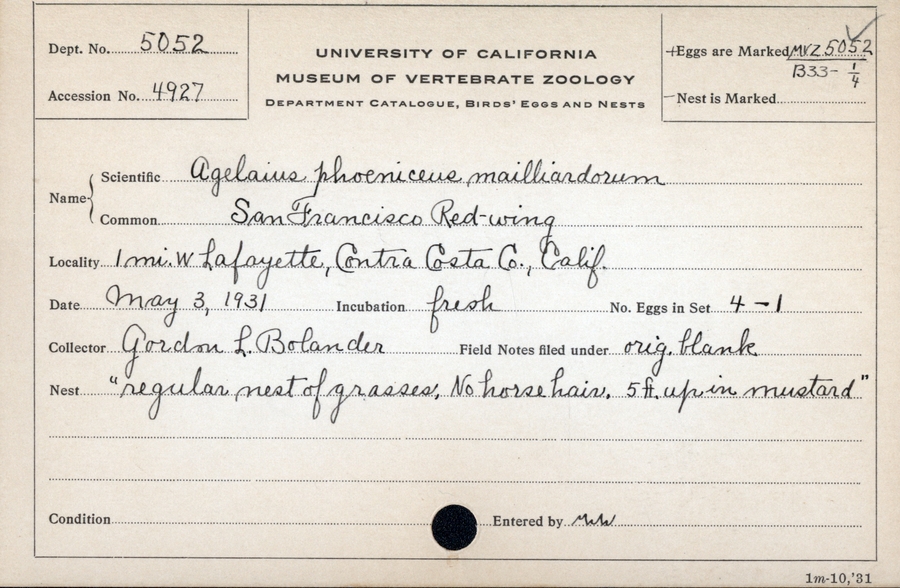 Dept. No. 5052
Accession No. 4927
UNIVERSITY OF CALIFORNIA
MUSEUM OF VERTEBRATE ZOOLOGY
DEPARTMENT CATALOGUE, BIRDS' EGGS AND NESTS
+Eggs are Marked MVZ 5052
B33- 1/4
-Nest is Marked
Name
Scientific Agelaius phoeniceus mailliardorum
Common San Francisco Red-wing
Locality 1 mi. W Lafayette, Contra Costa Co., Calif.
Date May 3, 1931 Incubation fresh No. Eggs in Set 4-1
Collector Gordon L. Bolander Field Notes filed under orig. blank
Nest "regular nest of grasses. No horse hair. 5 ft. up in mustard"
Condition Entered by
1m-10,'31